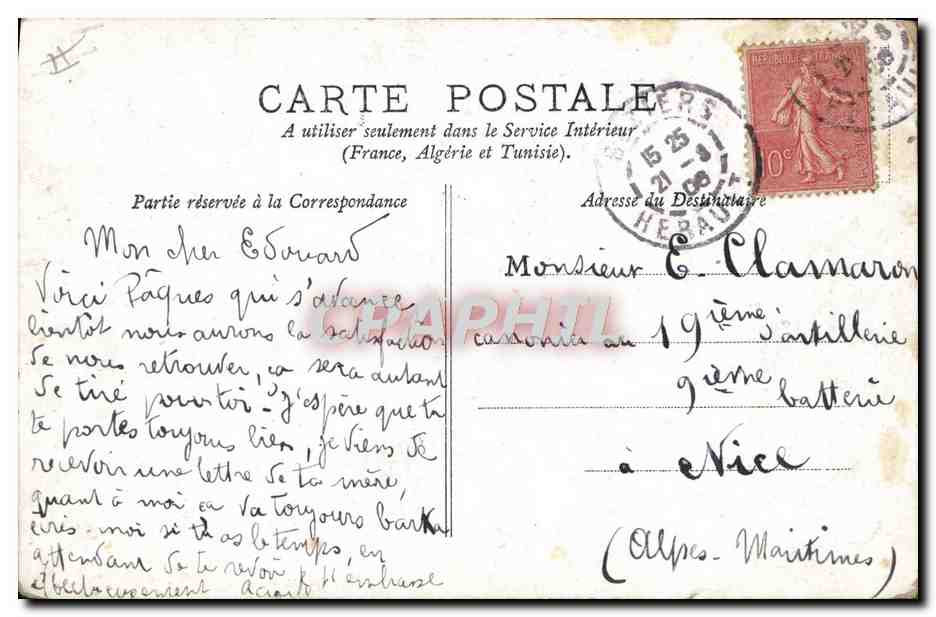 CARTE POSTALE
A utiliser seulement dans le Service Intérieur
(France, Algérie et Tunisie).
Partie réservée à la Correspondance
Mon cher Edouard
Voiçi Pâques qui s'avance
bientôt nous aurons la satisfaction
de nous retrouver, ça sera autant
de tiré pour toi - J'espère que tu
te portes toujours bien, je viens de
recevoir une lettre de ta mère,
quant à moi ça va toujours barka
écris-moi si tu as le temps, en
attendant de te revoir je t'embrasse
affectueusement
Adresse du Destinataire
Monsieur E. Clamaron
canonier au 19ième d'artillerie
9ième batterie
à Nice
(Alpes-Maritimes)
BEZIERS
15 25
21 -3
06
HERAULT
REPUBLIQUE FRANÇAISE
10c
CPAPHIL